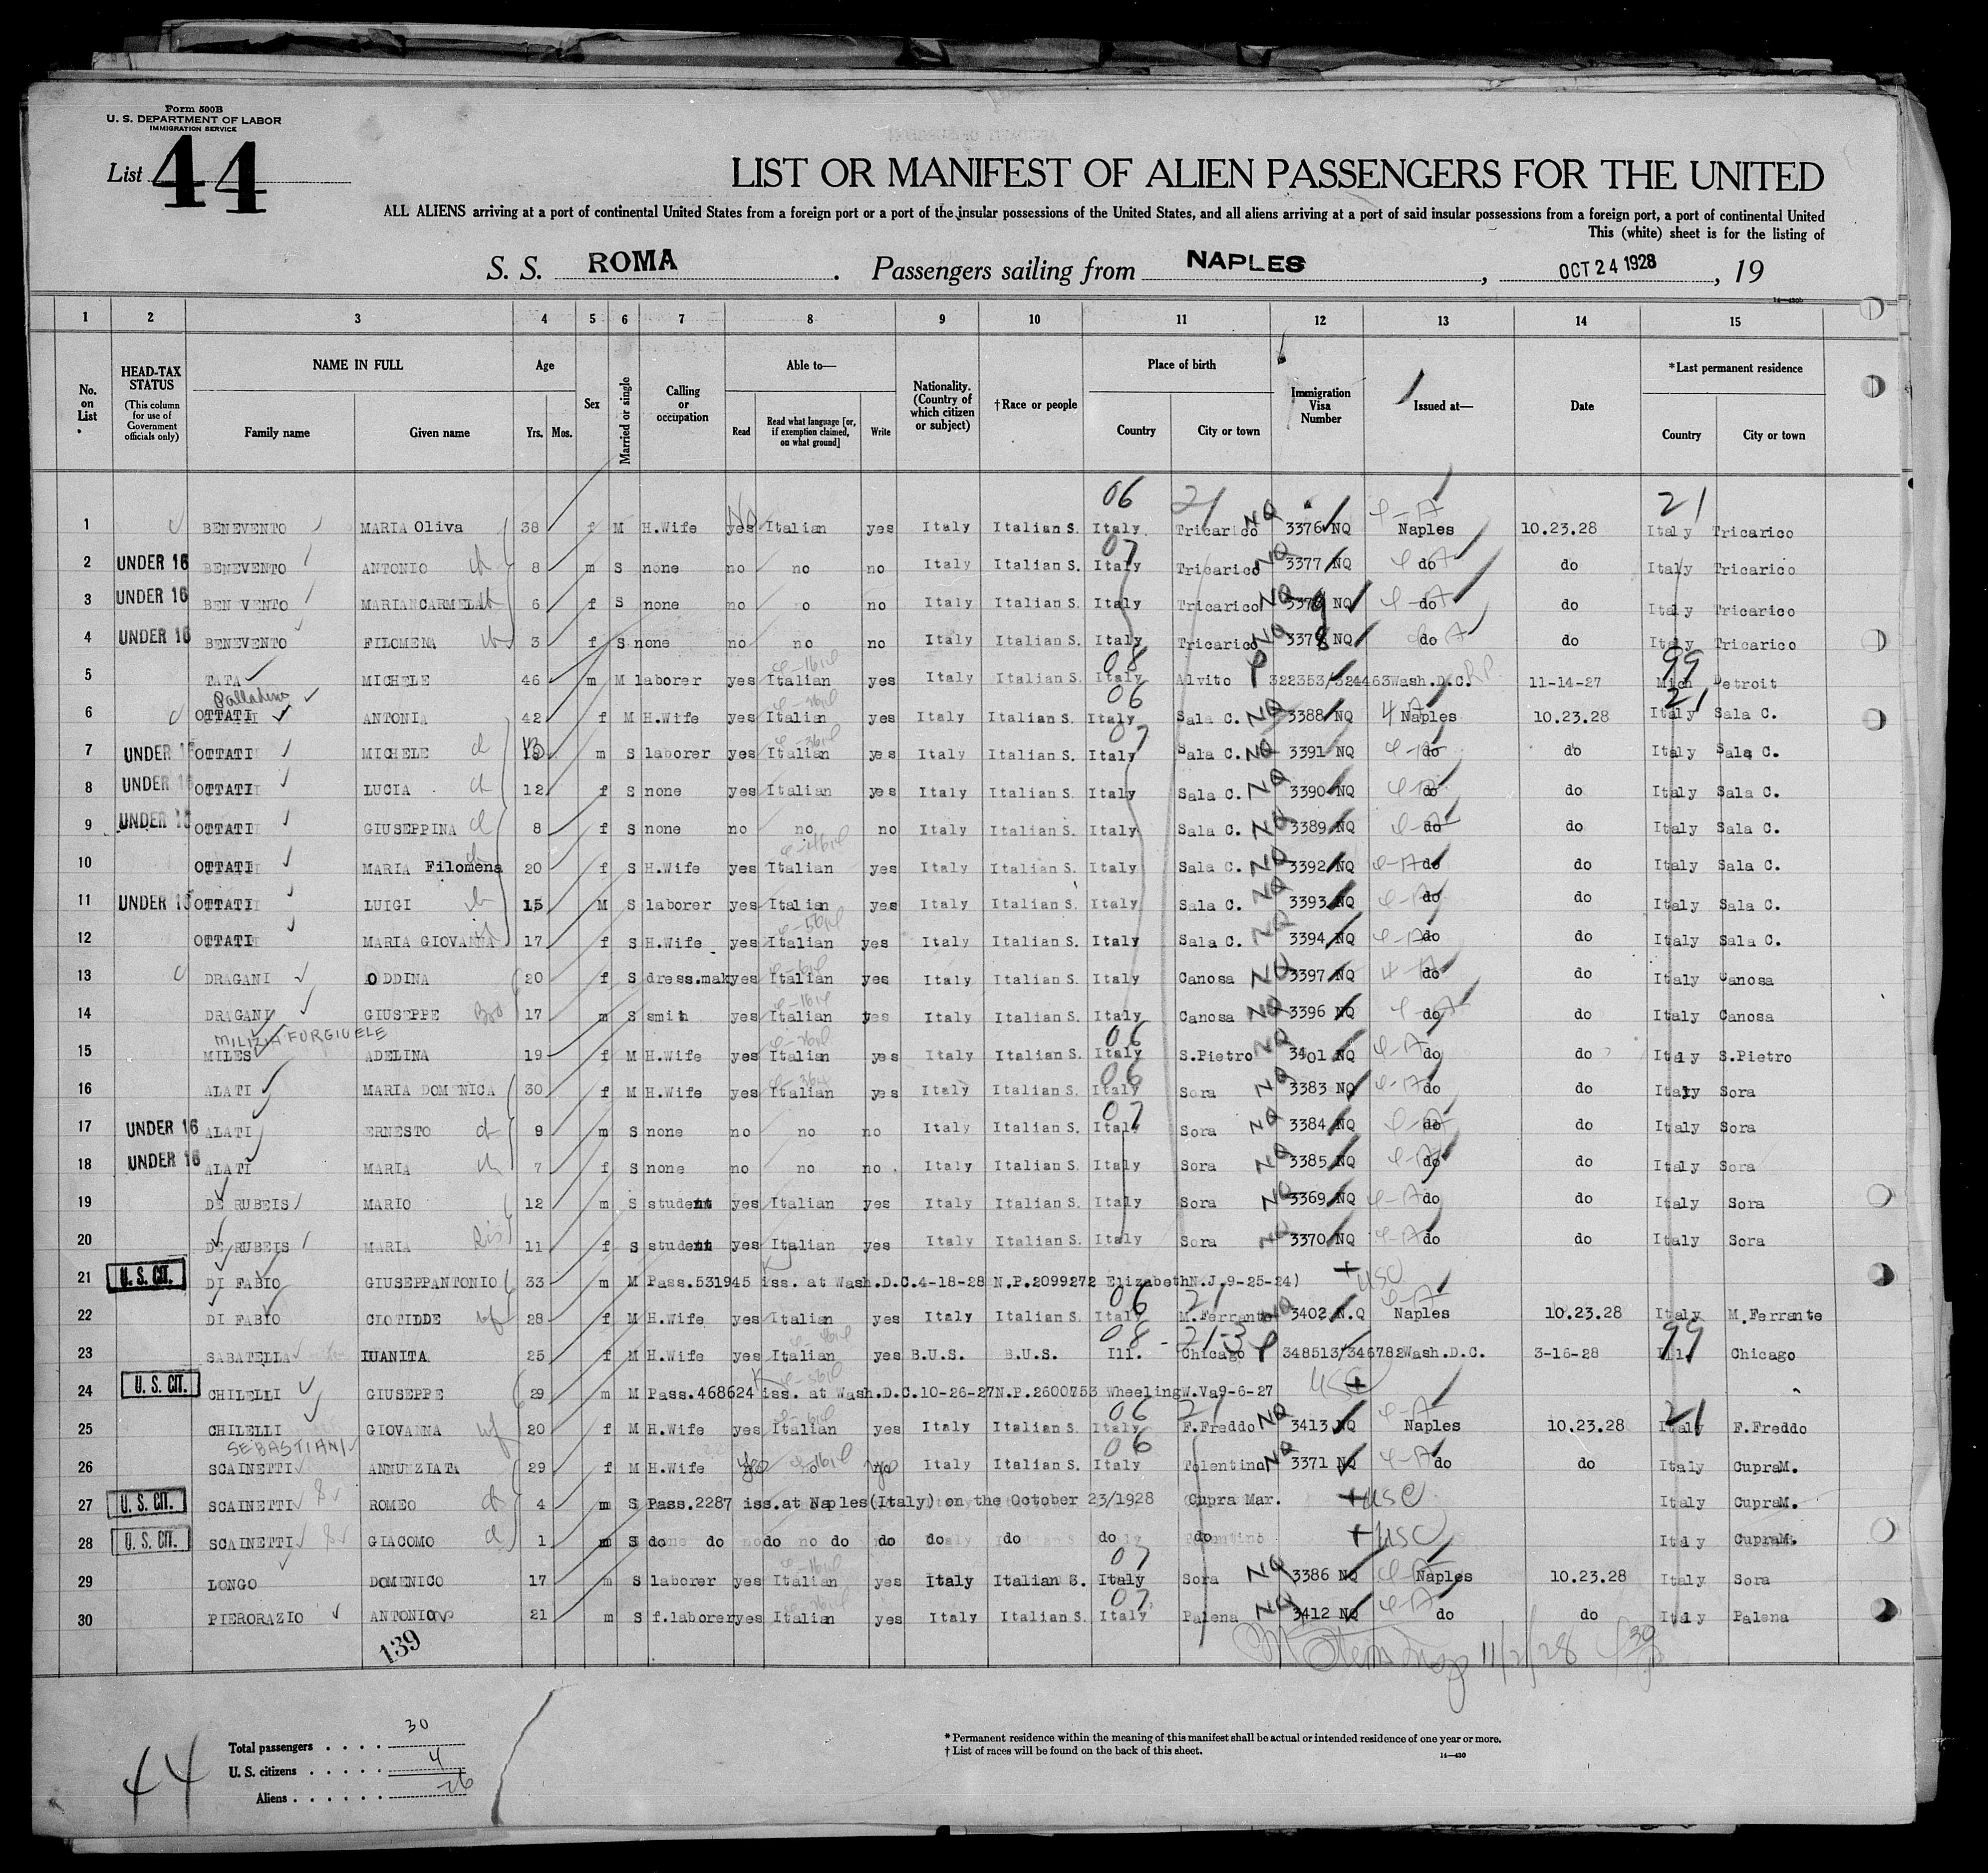 Form 500B
U. S. DEPARTMENT OF LABOR
IMMIGRATION SERVICE
List 44
LIST OR MANIFEST OF ALIEN PASSENGERS FOR THE UNITED
ALL ALIENS arriving at a port of continental United States from a foreign port or a port of the insular possessions of the United States, and all aliens arriving at a port of said insular possessions from a foreign port, a port of continental United
This (white) sheet is for the listing of
S. S. ROMA. Passengers sailing from NAPLES, OCT 24 1928, 19
14—430b
1 2 3 4 5 6 7 8 9 10 11 12 13 14 15
No. on List
HEAD-TAX STATUS (This column for use of Government officials only)
NAME IN FULL Family name Given name
Age Yrs. Mos.
Sex
Married or single
Calling or occupation
Able to— Read Read what language [or, if exemption claimed, on what ground] Write
Nationality. (Country of which citizen or subject)
†Race or people
Place of birth Country City or town
Immigration Visa Number
Issued at—
Date
*Last permanent residence Country City or town
06 21 21
1 BENEVENTO MARIA Oliva 38 f M H.Wife yes No Italian yes Italy Italian S. Italy Tricarico NQ 3376 NQ Naples 10.23.28 Italy Tricarico
2 UNDER 16 BENEVENTO ANTONIO ch 8 m S none no no no Italy Italian S. Italy 07 Tricarico NQ 3377 NQ do do Italy Tricarico
3 UNDER 16 BENEVENTO MARIANCARMELA 6 f S none no no no Italy Italian S. Italy Tricarico NQ 3379 NQ do do Italy Tricarico
4 UNDER 16 BENEVENTO FILOMENA ch 3 f S none no no no Italy Italian S. Italy Tricarico NQ 3378 NQ do do Italy Tricarico
5 TATA MICHELE 46 m M laborer yes Italian yes Italy Italian S. Italy 08 Alvito 322353/324463 Wash.D.C. 11-14-27 99 Mich Detroit
Palladino
6 OTTATI ANTONIA 42 f M H.Wife yes Italian yes Italy Italian S. Italy 06 Sala C. NQ 3388 NQ Naples 10.23.28 21 Italy Sala C.
7 UNDER 16 OTTATI MICHELE ch 13 m S laborer yes Italian yes Italy Italian S. Italy 07 Sala C. NQ 3391 NQ do do Italy Sala C.
8 UNDER 16 OTTATI LUCIA ch 12 f S none yes Italian yes Italy Italian S. Italy Sala C. NQ 3390 NQ do do Italy Sala C.
9 UNDER 16 OTTATI GIUSEPPINA ch 8 f S none no no no Italy Italian S. Italy Sala C. NQ 3389 NQ do do Italy Sala C.
10 OTTATI MARIA Filomena 20 f S H.Wife yes Italian yes Italy Italian S. Italy Sala C. NQ 3392 NQ do do Italy Sala C.
11 UNDER 16 OTTATI LUIGI ch 15 M S laborer yes Italian yes Italy Italian S. Italy Sala C. NQ 3393 NQ do do Italy Sala C.
12 OTTATI MARIA GIOVANNA 17 f S H.Wife yes Italian yes Italy Italian S. Italy Sala C. NQ 3394 NQ do do Italy Sala C.
13 DRAGANI ODDINA 20 f S dress.mak yes Italian yes Italy Italian S. Italy Canosa NQ 3397 NQ do do Italy Canosa
14 DRAGANI GIUSEPPE Bro 17 m S smith yes Italian yes Italy Italian S. Italy Canosa NQ 3396 NQ do do Italy Canosa
MILIZIA FURGIUELE
15 MILES ADELINA 19 f M H.Wife yes Italian yes Italy Italian S. Italy 06 S.Pietro NQ 3401 NQ do do Italy S.Pietro
16 ALATI MARIA DOMENICA 30 f M H.Wife yes Italian yes Italy Italian S. Italy 06 Sora NQ 3383 NQ do do Italy Sora
17 UNDER 16 ALATI ERNESTO ch 9 m S none no no no Italy Italian S. Italy 07 Sora NQ 3384 NQ do do Italy Sora
18 UNDER 16 ALATI MARIA ch 7 f S none no no no Italy Italian S. Italy Sora NQ 3385 NQ do do Italy Sora
19 DE RUBEIS MARIO 12 m S student yes Italian yes Italy Italian S. Italy Sora NQ 3369 NQ do do Italy Sora
20 DE RUBEIS MARIA Sis 11 f S student yes Italian yes Italy Italian S. Italy Sora NQ 3370 NQ do do Italy Sora
21 U. S. CIT. DI FABIO GIUSEPPANTONIO 33 m M Pass.531945 iss. at Wash.D.C.4-18-28 N.P.2099272 ElizabethN.J.9-25-24) USC
22 DI FABIO CLOTIDDE wf 28 f M H.Wife yes Italian yes Italy Italian S. Italy 06 21 M.Ferrante NQ 3402 N.Q Naples 10.23.28 Italy M.Ferrante
23 SABATELLA IUANITA 25 f M H.Wife yes Italian yes B.U.S. B.U.S. Ill. 08 - 21-3 Chicago 348513/346782 Wash.D.C. 3-16-28 99 Ill. Chicago
24 U. S. CIT. CHILELLI GIUSEPPE 29 m M Pass.468624 iss. at Wash.D.C.10-26-27N.P.2600753 WheelingW.Va9-6-27 USC
25 CHILELLI GIOVANNA wf 20 f M H.Wife yes Italian yes Italy Italian S. Italy 06 21 F.Freddo NQ 3413 NQ Naples 10.23.28 21 Italy F.Freddo
SEBASTIANI
26 SCAINETTI ANNUNZIATA 29 f M H.Wife yes no yes Italy Italian S. Italy 06 Tolentino NQ 3371 NQ do do Italy CupraM.
27 U. S. CIT. SCAINETTI ROMEO ch 4 m S Pass.2287 iss.at Naples(Italy) on the October 23/1928 Cupra Mar. USC Italy CupraM.
28 U. S. CIT. SCAINETTI GIACOMO ch 1 m S do do do do do do do do do USC Italy CupraM.
29 LONGO DOMENICO 17 m S laborer yes Italian yes Italy Italian S. Italy 07 Sora NQ 3386 NQ Naples 10.23.28 Italy Sora
30 PIERORAZIO ANTONIO 21 m S f.laborer yes Italian yes Italy Italian S. Italy 07 Palena NQ 3412 NQ do do Italy Palena
139
11/2/28
Total passengers . . . . 30
U. S. citizens . . . . . 4
Aliens . . . . . . 26
44
* Permanent residence within the meaning of this manifest shall be actual or intended residence of one year or more.
† List of races will be found on the back of this sheet.
14—430